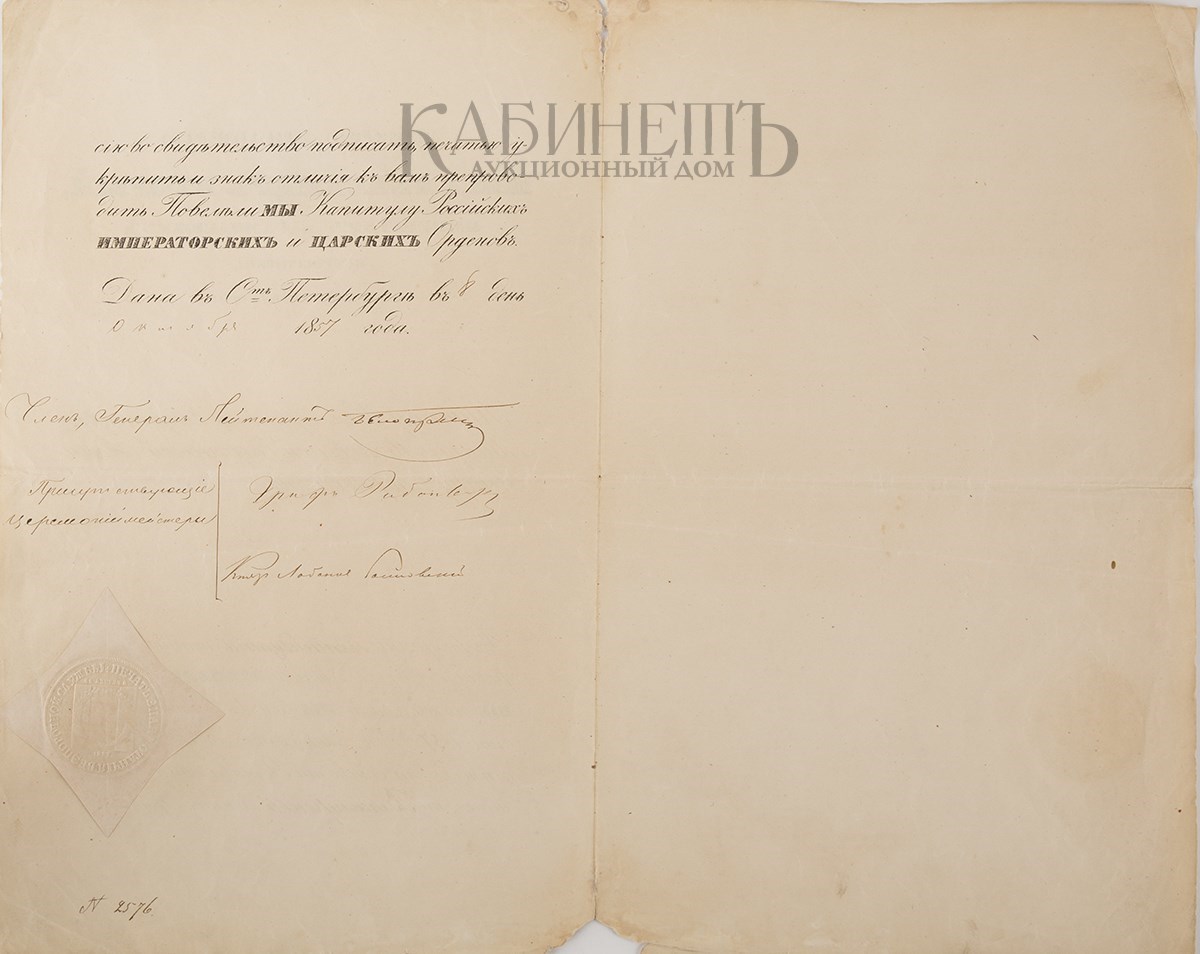 КАБИНЕТЪ
АУКЦИОННЫЙ ДОМ
сію во свидѣтельство подписать, печатью у-
крѣпить и знакъ отличія къ вамъ препрово-
дить Повелѣли МЫ Капитулу Россійскихъ
ИМПЕРАТОРСКИХЪ и ЦАРСКИХЪ Орденовъ.
Дана въ Стъ Петербургѣ въ 8 день
Октября 1857 года.
Членъ, Генералъ Лейтенантъ
Присутствующіе
Церемоніймейстеры
Графъ
Князь Лобановъ Ростовскій
N 2576